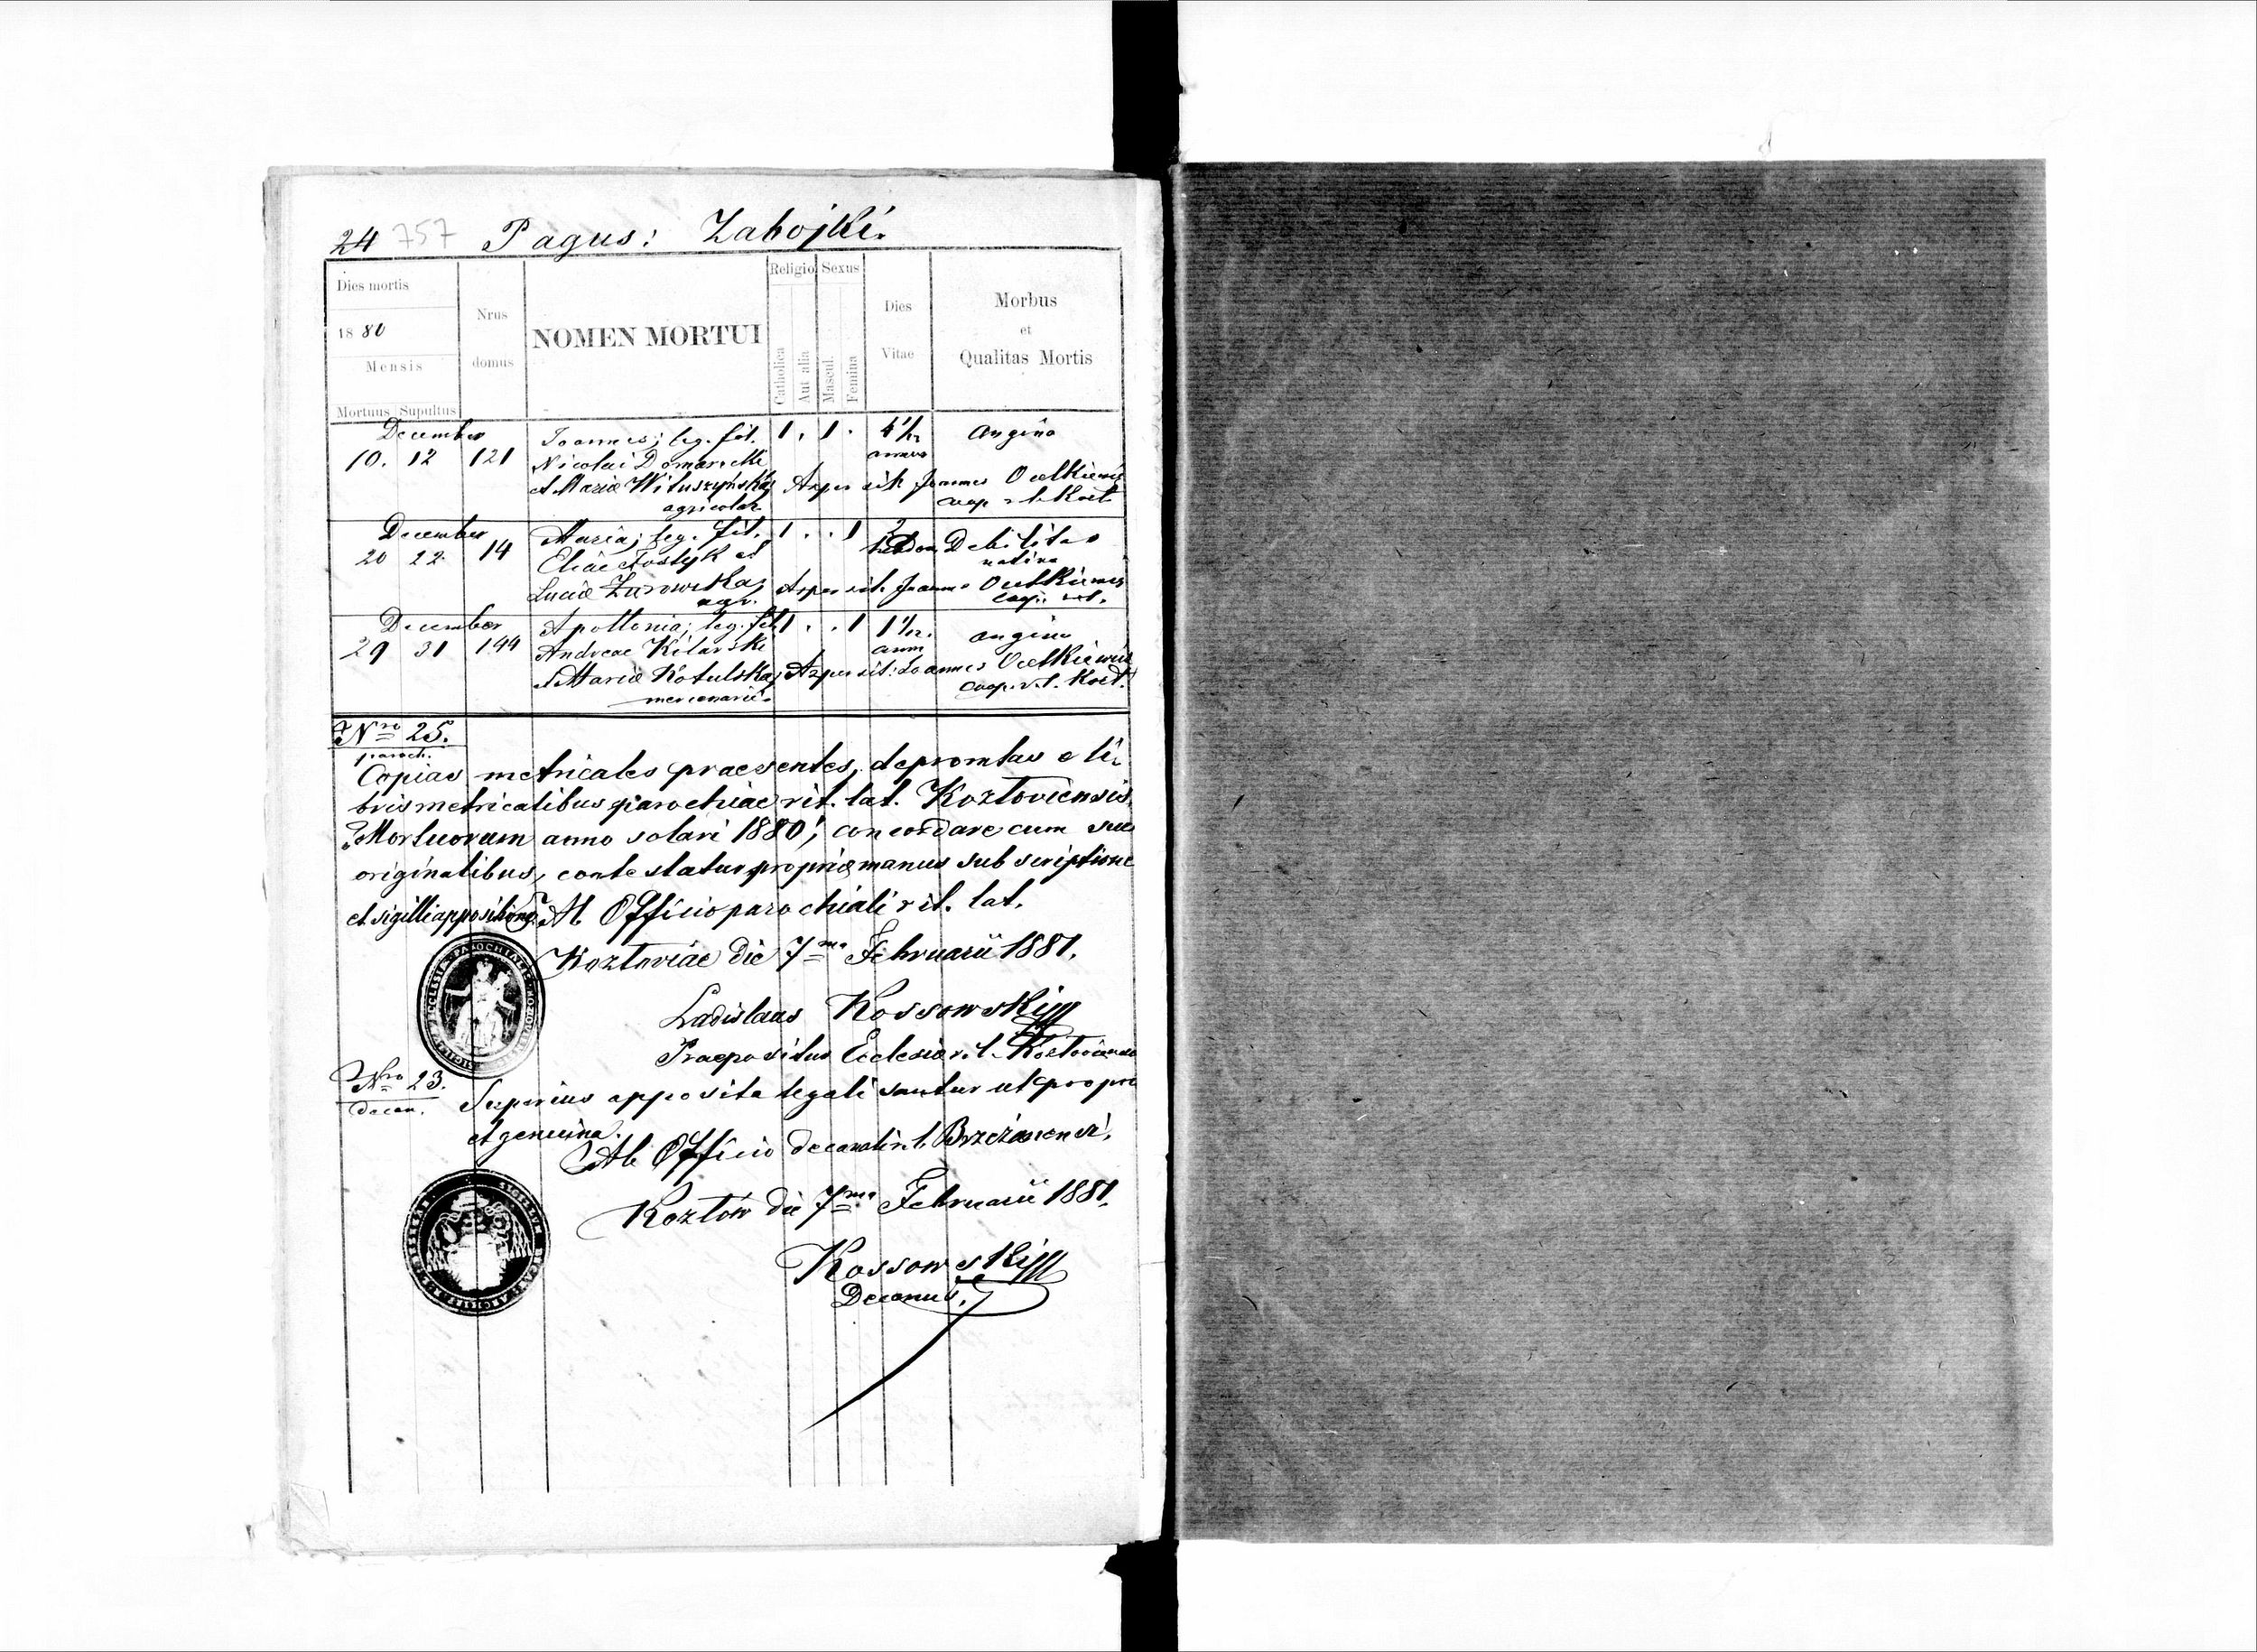 24 757 Pagus: Zabojki.
Dies mortis
1880
Mensis
Mortuus Supultus
Nrus
domus
NOMEN MORTUI
Religio
Catholica
Aut alia
Sexus
Mascul.
Femina
Dies
Vitae
Morbus
et
Qualitas Mortis
December
10. 12 121 Joannes; leg. fil. 1 . 1 . Angina
Nicolai
et Mariae Wituszyńska; Joannes
agricolar.
December
20 22 14 Maria; leg. fil. 1 . . 1 2 hebdom. Debilitas
Eliae et nativa
Luciae Żurowska;
agr.
December
29 31 144 Apollonia; leg. fil. 1 . . 1 1 1/12. angina
Andreae Kilarski
et Mariae Kotulska; Joannes
mercenarii. coop. r. l. Kozł.
Nro 25.
paroch.
Copias metricales praesentes, depromtas e li-
bris metricalibus parochiae rit. lat. Kozłoviensis,
Mortuorum anno solari 1880, concordare cum suis
originalibus, contestatur propriae manus subscriptione
et sigilli appositione. Ab Officio parochiali rit. lat.
Kozłoviae die 7ma Februarii 1881.
Ladislaus Kossowski
Praepositus Ecclesiae r. l. Kozłoviensis
Nro 23.
decan. Superius apposita legalisantur ut propria
et genuina.
Ab Officio decanali r. l. Brzeżanensi.
Kozłów die 7ma Februarii 1881.
Kossowski
Decanus.